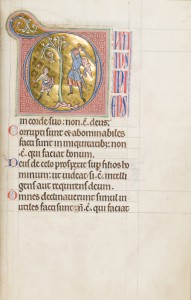 DIXIT
INSIPIENS
in corde suo: non . ē . deus:
Corrupti sunt & abominabiles
facti sunt in iniquitatib;: non
. ē . qui faciat bonum.
Deus de celo prospexit sup filios ho
minum: ut uideat si . ē . intelli
gens aut requirens deum.
Omnes declinauerunt simul in
utiles facti sunt: ñ . ē . qui faciat